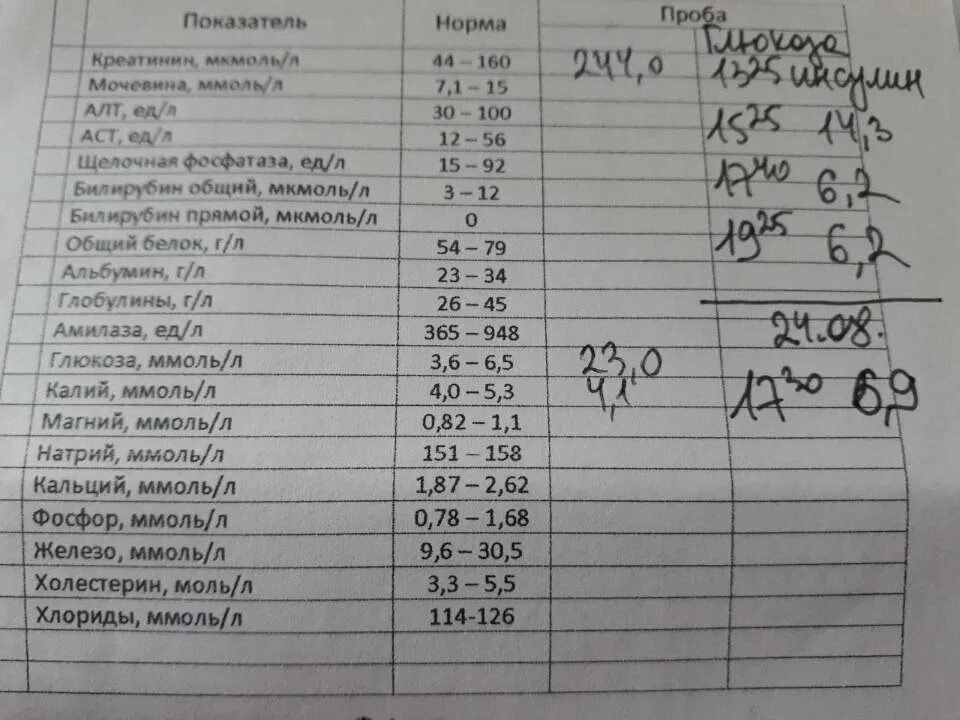 Показатель Норма Проба
Глюкоза
Креатинин, мкмоль/л 44 – 160 244,0 13 25 инсулин
Мочевина, ммоль/л 7,1 – 15
АЛТ, ед/л 30 – 100 15 25 14,3
АСТ, ед/л 12 – 56
Щелочная фосфатаза, ед/л 15 – 92 17 40 6,2
Билирубин общий, мкмоль/л 3 – 12
Билирубин прямой, мкмоль/л 0 19 25 6,2
Общий белок, г/л 54 – 79
Альбумин, г/л 23 – 34
Глобулины, г/л 26 – 45
Амилаза, ед/л 365 – 948 24.08.
Глюкоза, ммоль/л 3,6 – 6,5 23,0
Калий, ммоль/л 4,0 – 5,3 4,1 17 30 6,9
Магний, ммоль/л 0,82 – 1,1
Натрий, ммоль/л 151 – 158
Кальций, ммоль/л 1,87 – 2,62
Фосфор, ммоль/л 0,78 – 1,68
Железо, ммоль/л 9,6 – 30,5
Холестерин, моль/л 3,3 – 5,5
Хлориды, ммоль/л 114-126